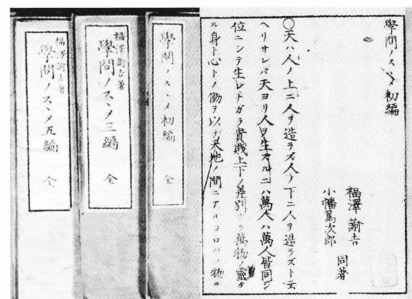 學問ノスヽメ 初編
福澤諭吉
小幡篤次郎
同著
○天ハ人ノ上ニ人ヲ造ラズ人ノ下ニ人ヲ造ラズト云
ヘリサレバ天ヨリ人ヲ生ズルニハ萬人ハ萬人皆同ジ
位ニシテ生レナガラ貴賤上下ノ差別ナク萬物ノ靈タ
ル身ト心トノ働ヲ以テ天地ノ間ニアルヨロヅノ物ヲ
學問ノスヽメ 初編 全
福澤諭吉著
學問ノスヽメ 三編 全
福澤諭吉著
學問ノスヽメ 五編 全